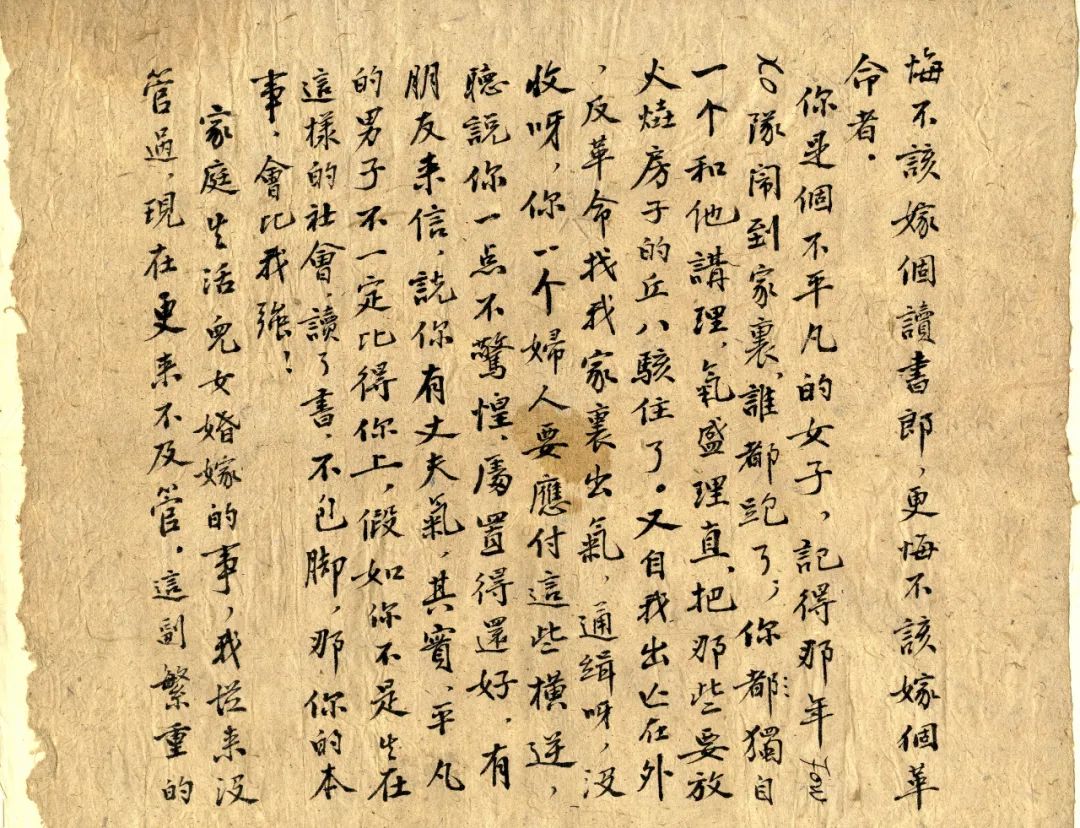 悔不該嫁個讀書郎,更悔不該嫁個革
命者.
你是個不平凡的女子,記得那年
隊闹到家裏、誰都跑了,你都獨自
一个和他講理、氣盛理直、把那些要放
火燒房子的丘八駭住了。又自我出亡在外
,反革命找我家裏出氣,通緝呀,沒
收呀,你一个婦人要應付這些橫逆,
聽説你一点不驚惶、處置得還好.有
朋友来信,説你有丈夫氣,其實、平凡
的男子不一定比得你上,假如你不是生在
這樣的社會、讀了書、不包脚,那你的本
事、會比我強!
家庭生活兒女婚嫁的事,我從来沒
管過,現在更来不及管.這副繁重的